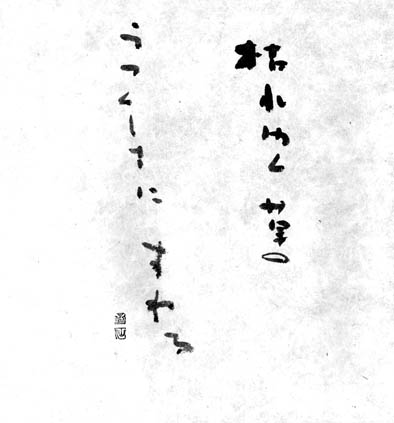 枯れゆく草の
うつくしさにすわる